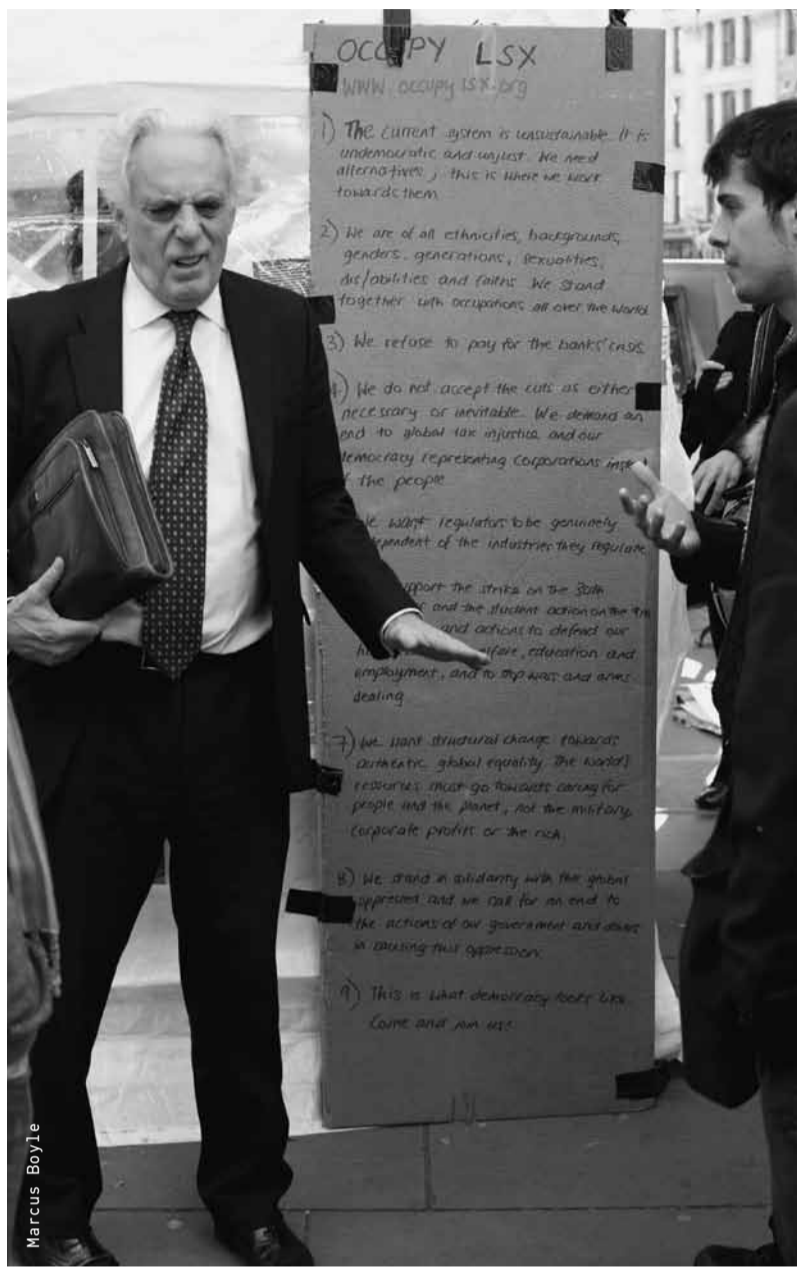 OCCUPY LSX
www.occupylsx.org
1) The current system is unsustainable. It is
undemocratic and unjust. We need
alternatives; this is where we work
towards them.
2) We are of all ethnicities, backgrounds,
genders, generations, sexualities,
dis/abilities and faiths. We stand
together with occupations all over the world.
3) We refuse to pay for the banks' crisis.
4) We do not accept the cuts as either
necessary or inevitable. We demand an
end to global tax injustice and our
democracy representing corporations
of the people
We want regulators to be genuinely
independent of the industries they regulate.
support the strike on the 30th
and the student action on the 9th
and actions to defend our
welfare, education and
employment, and to stop wars and arms
dealing.
7) We want structural change towards
authentic global equality. The world's
resources must go towards caring for
people and the planet, not the military,
corporate profits or the rich.
8) We stand in solidarity with the global
oppressed and we call for an end to
the actions of our government and others
in causing this oppression.
9) This is what democracy looks like.
Come and join us!
Marcus Boyle